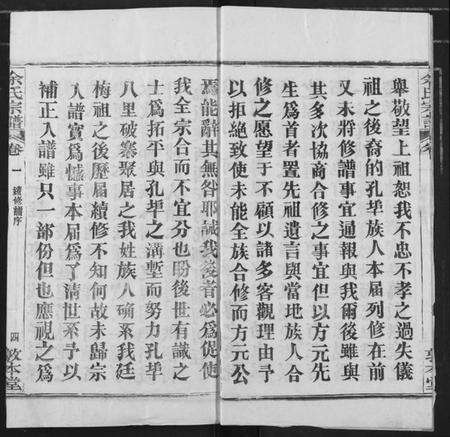 舉敬望上祖恕我不忠不孝之過失儀
祖之後裔的孔垏族人本屆列修在前
又未將修譜事宜通報與我爾後雖與
其多次協商合修之事宜但以方元先
生為首者置先祖遺言與當地族人合
修之愿望于不顧以諸多客觀理由予
以拒絕致使未能全族合修而方元公
焉能辭其無咎耶誠我後者必為促使
我全宗合而不宜分也盼後世有識之
士為拓平與孔垏之溝塹而努力孔垏
八里破寨聚居之我姓族人確系我廷
梅祖之後歷屆續修不知何故未歸宗
入譜實為憾事本屆為了清世系予以
補正入譜雖只一部份但也應視之為
余氏宗譜
卷一
續修譜序
四
敦本堂